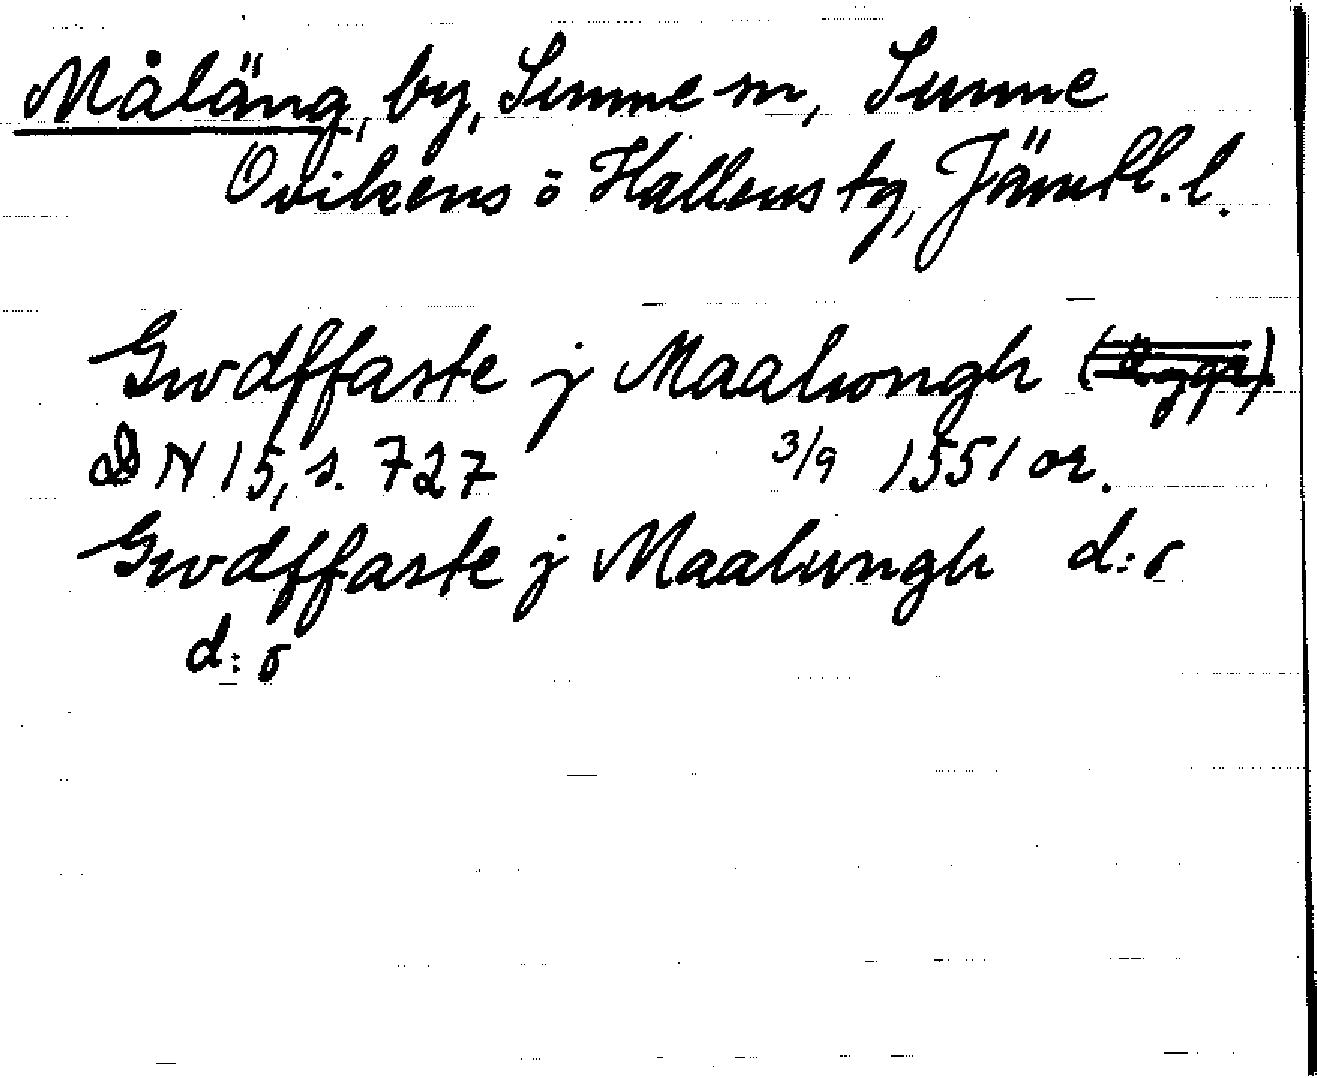 Måläng, by, Sunne sn, Sunne
Ovikens o Hallens tg, Jämtl. l.
Gwdffaste j Maalwngh
DN 15, s. 727 3/9 1551 or.
Gwdffaste j Maalungh d:o
d:o